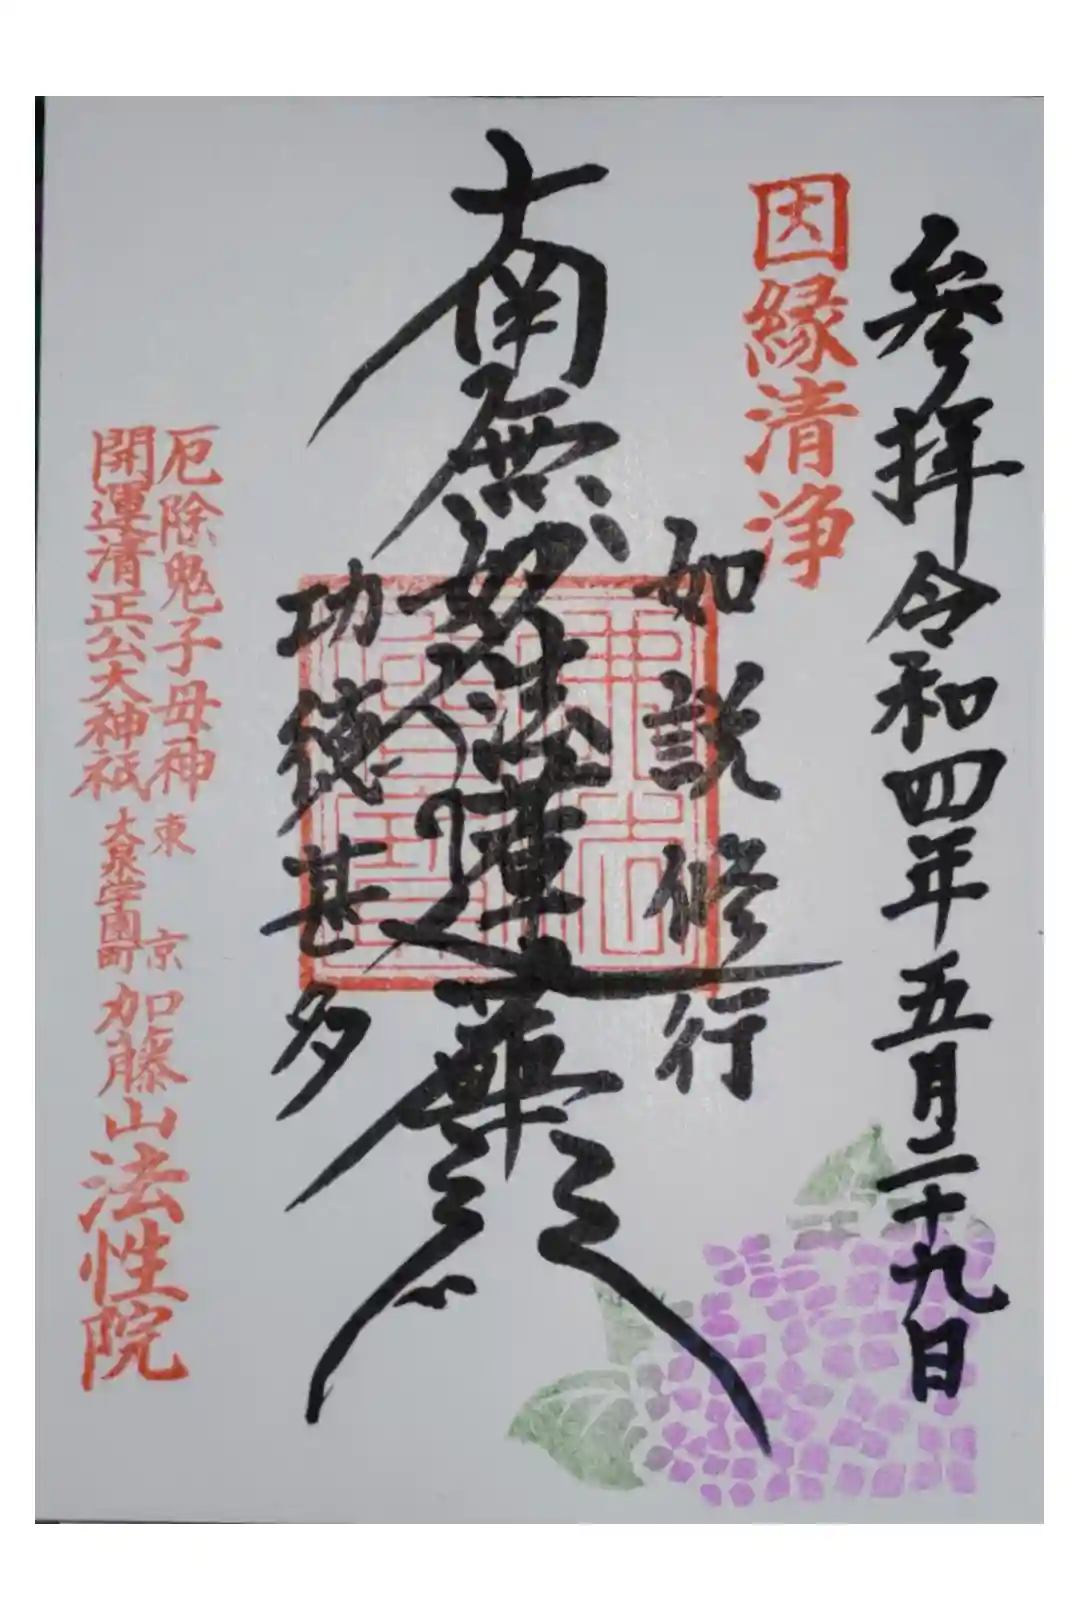 参拝 令和四年五月二十九日
因縁清浄
如説修行
南無妙法蓮華経
功徳甚多
厄除鬼子母神
開運清正公大神祇
東京
大泉学園町
加藤山法性院